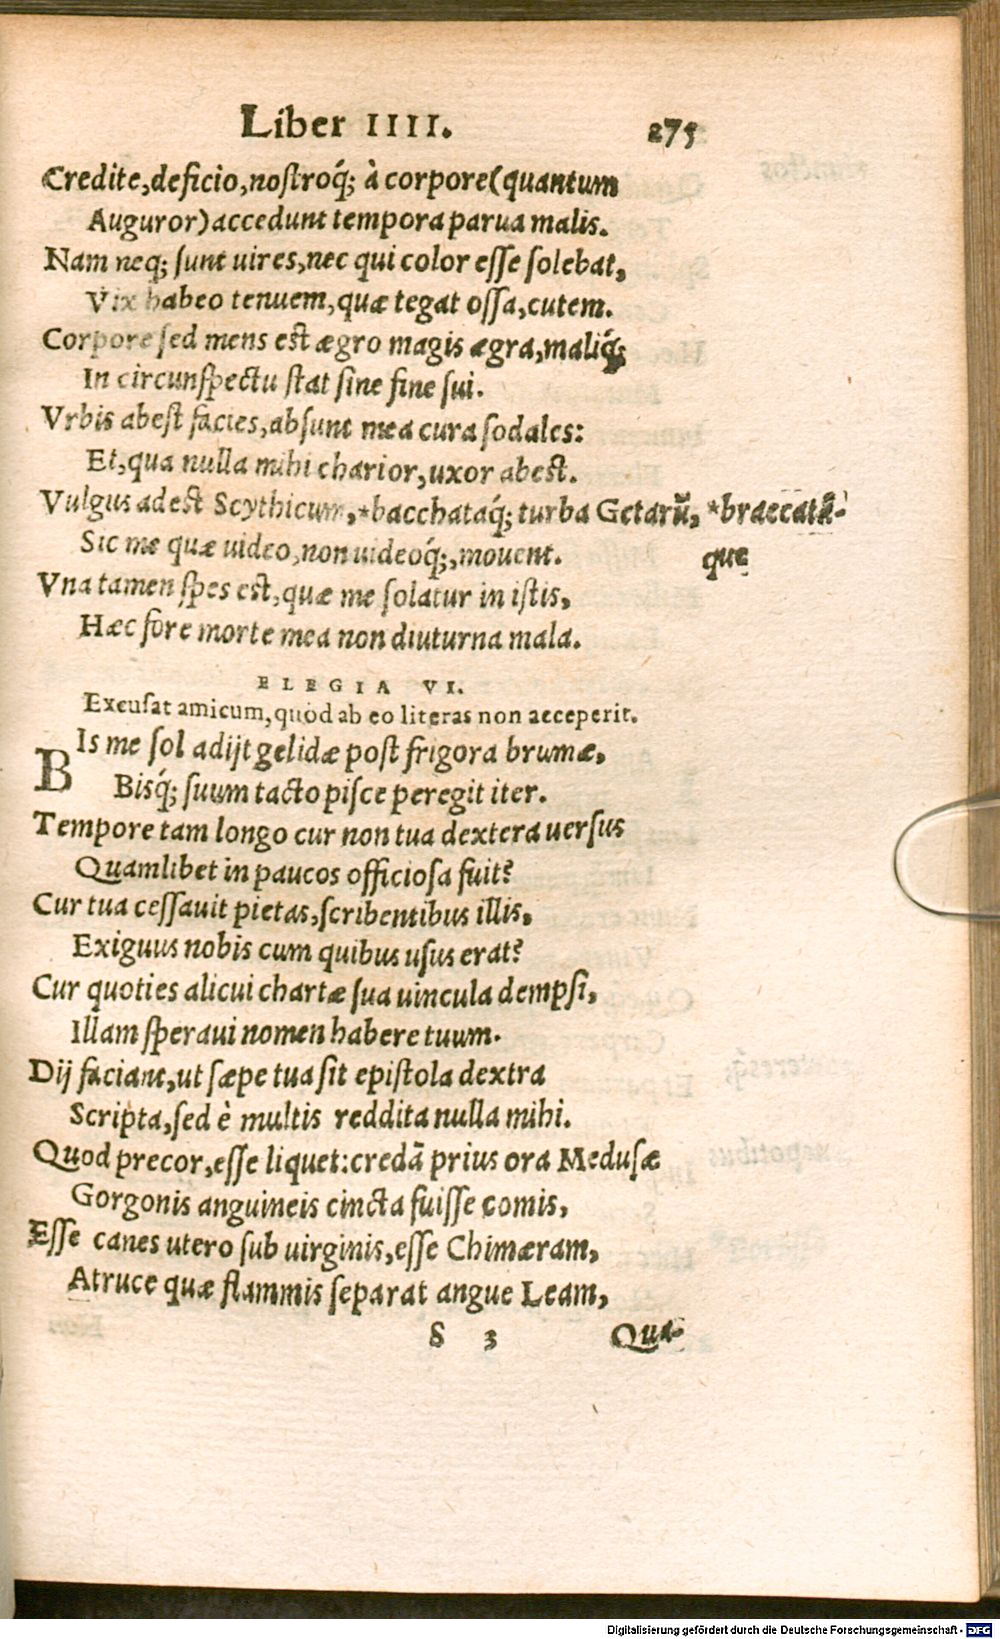 Liber IIII. 275
Credite, deficio, nostroq́; à corpore (quantum
Auguror) accedunt tempora parua malis.
Nam neq; sunt uires, nec qui color esse solebat,
Vix habeo tenuem, quæ tegat ossa, cutem.
Corpore sed mens est ægro magis ægra, maliq́;
In circunspectu stat sine fine sui.
Vrbis abest facies, absunt mea cura sodales:
Et, qua nulla mihi charior, uxor abest.
Vulgus adest Scythicum, *bacchataq́; turba Getarũ, *braccatá-
Sic me quæ uideo, non uideoq́;, mouent. que
Vna tamen spes est, quæ me solatur in istis,
Hæc fore morte mea non diuturna mala.
ELEGIA VI.
Excusat amicum, quod ab eo literas non acceperit.
BIs me sol adijt gelidæ post frigora brumæ,
Bisq́; suum tacto pisce peregit iter.
Tempore tam longo cur non tua dextera uersus
Quamlibet in paucos officiosa fuit?
Cur tua cessauit pietas, scribentibus illis,
Exiguus nobis cum quibus usus erat?
Cur quoties alicui chartæ sua uincula dempsi,
Illam speraui nomen habere tuum.
Dij faciant, ut sæpe tua sit epistola dextra
Scripta, sed è multis reddita nulla mihi.
Quod precor, esse liquet: credã prius ora Medusæ
Gorgonis anguineis cincta fuisse comis,
Esse canes utero sub uirginis, esse Chimæram,
Atruce quæ flammis separat angue Leam,
S 3 Qua-
Digitalisierung gefördert durch die Deutsche Forschungsgemeinschaft - DFG